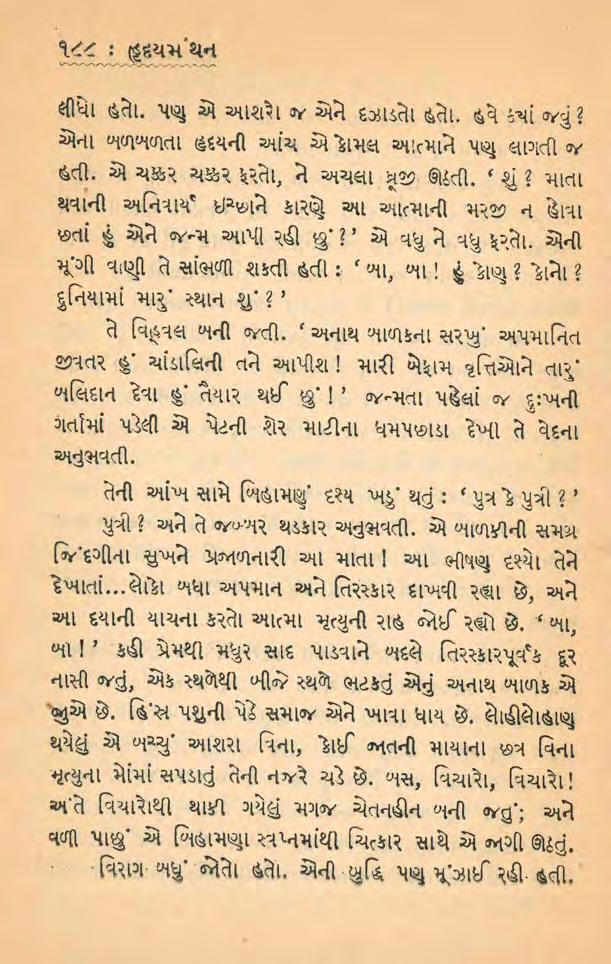 ૧૮૮ : હૃદયમંથન
લીધો હતો. પણ એ આશરો જ એને દઝાડતો હતો. હવે કયાં જવું?
એના બળબળતા હૃદયની આંચ એ કોમલ આત્માને પણ લાગતી જ
હતી. એ ચક્કર ચક્કર ફરતો, ને અચલા ધ્રૂજી ઊઠતી. ‘ શું? માતા
થવાની અનિવાર્ય ઇચ્છાને કારણે આ આત્માની મરજી ન હોવા
છતાં હું એને જન્મ આપી રહી છું?’ એ વધુ ને વધુ ફરતો. એની
મૂંગી વાણી તે સાંભળી શકતી હતી : ‘ બા, બા! હું કોણ? કોનો?
દુનિયામાં મારું સ્થાન શું?’
તે વિહ્વલ બની જતી. ‘ અનાથ બાળકના સરખું અપમાનિત
જીવતર હું ચાંડાલિની તને આપીશ! મારી બેફામ વૃત્તિઓને તારું
બલિદાન દેવા હું તૈયાર થઈ છું!’ જન્મતા પહેલાં જ દુઃખની
ગર્તામાં પડેલી એ પેટની શેર માટીના ધમપછાડા દેખી તે વેદના
અનુભવતી.
તેની આંખ સામે બિહામણું દૃશ્ય ખડું થતું : ‘ પુત્ર કે પુત્રી?’
પુત્રી? અને તે જબ્બર થડકાર અનુભવતી. એ બાળકીની સમગ્ર
જિંદગીના સુખને પ્રજાળનારી આ માતા! આ ભીષણ દૃશ્યો તેને
દેખાતાં...લોકો બધા અપમાન અને તિરસ્કાર દાખવી રહ્યા છે, અને
આ દયાની યાચના કરતો આત્મા મૃત્યુની રાહ જોઈ રહ્યો છે. ‘ બા,
બા!’ કહી પ્રેમથી મધુર સાદ પાડવાને બદલે તિરસ્કારપૂર્વક દૂર
નાસી જતું, એક સ્થળેથી બીજે સ્થળે ભટકતું એનું અનાથ બાળક એ
જુએ છે. હિંસ્ર પશુની પેઠે સમાજ એને ખાવા ધાય છે. લોહીલોહાણ
થયેલું એ બચ્ચું આશરા વિના, કોઈ જાતની માયાના છત્ર વિના
મૃત્યુના મોંમાં સપડાતું તેની નજરે ચડે છે. બસ, વિચારો, વિચારો!
અંતે વિચારોથી થાકી ગયેલું મગજ ચેતનહીન બની જતું; અને
વળી પાછું એ બિહામણા સ્વપ્નમાંથી ચિત્કાર સાથે એ જાગી ઊઠતું.
વિરાગ બધું જોતો હતો. એની બુદ્ધિ પણ મૂંઝાઈ રહી હતી.